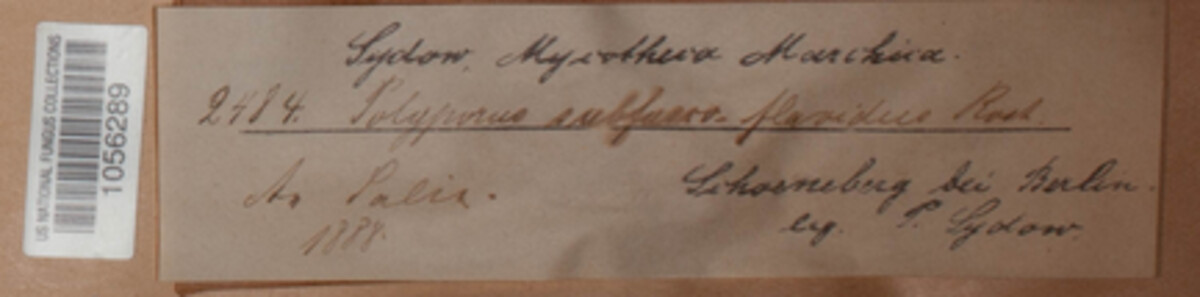 US NATIONAL FUNGUS COLLECTIONS
1056289
Sydow, Mycotheca Marchica.
2484. Polyporus subfusco-flavidus Rost.
An Salix.
1888.
Schoeneberg bei Berlin.
leg. P. Sydow.